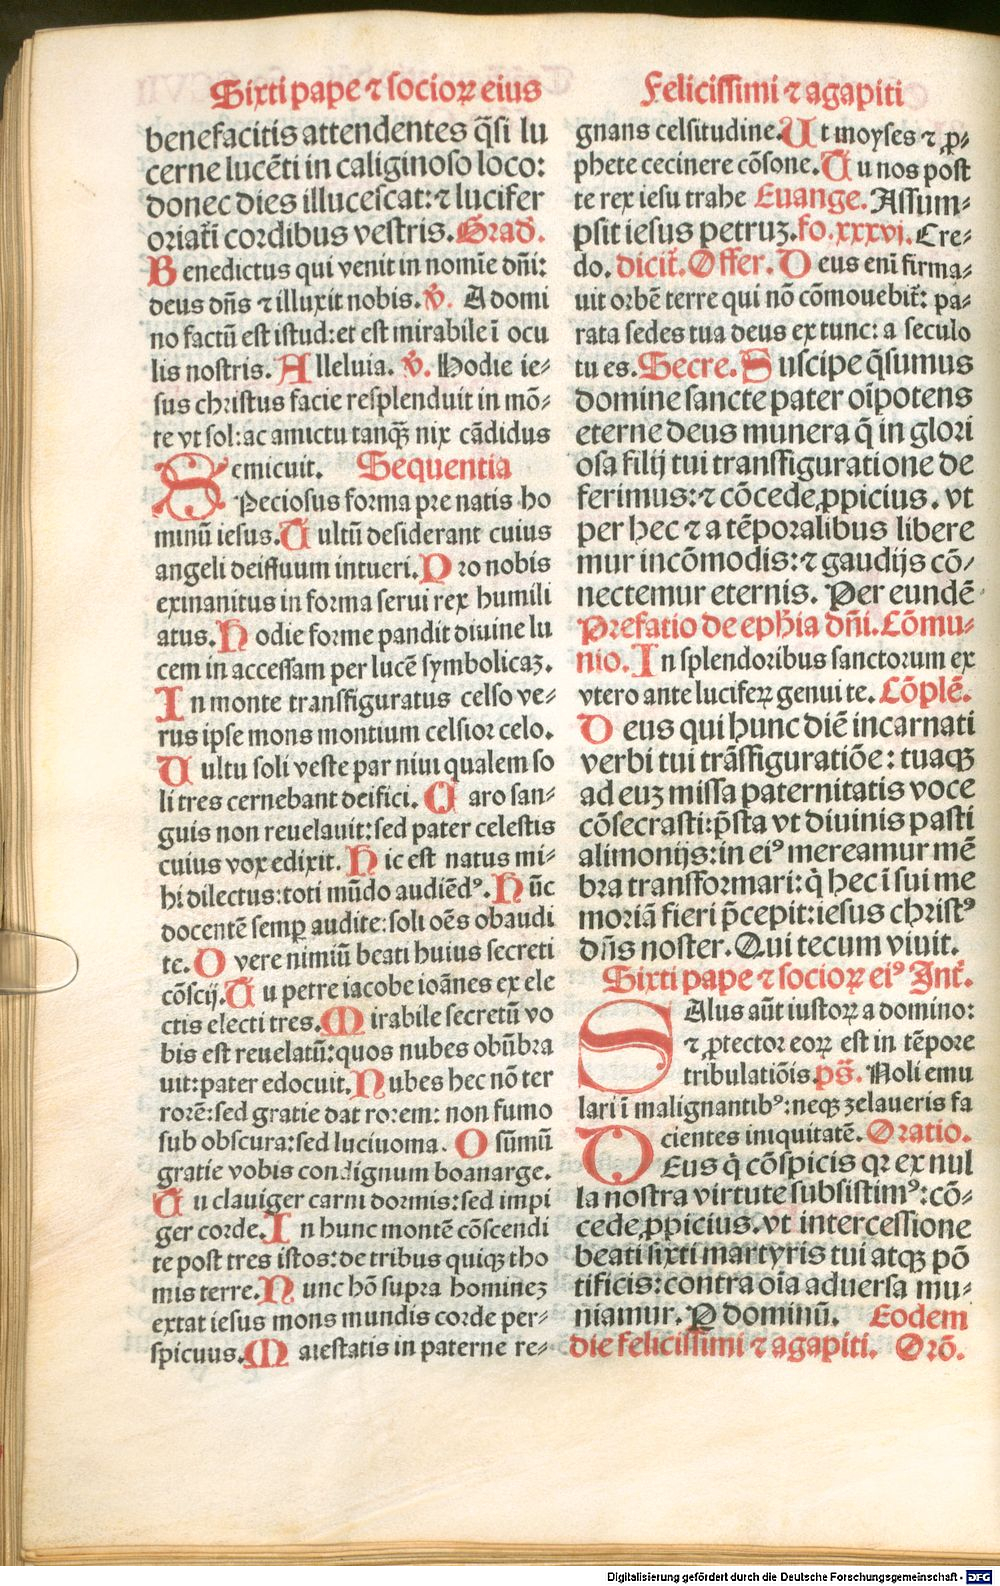 Sixti pape ⁊ socioꝝ eius
benefacitis attendentes q̄si lu
cerne lucēti in caliginoso loco:
donec dies illucescat: ⁊ lucifer
oriat̄ i cordibus vestris. Grad̄.
Benedictus qui venit in nomīe dn̄i:
deus dn̄s ⁊ illuxit nobis. v̄. A domi
no factū est istud: et est mirabile ī ocu
lis nostris. Alleluia. v̄. Hodie ie-
sus christus facie resplenduit in mō-
te vt sol: ac amictu tanqꝫ nix cādidus
emicuit. Sequentia
Speciosus forma pre natis ho
minū iesus. Vultū desiderant cuius
angeli deiffuum intueri. Pro nobis
exinanitus in forma serui rex humili
atus. Hodie forme pandit diuine lu
cem in accessam per lucē symbolicaꝫ.
In monte transfiguratus celso ve-
rus ipse mons montium celsior celo.
Vultu soli veste par niui qualem so
li tres cernebant deifici. Caro san-
guis non reuelauit: sed pater celestis
cuius vox edixit. Hic est natus mi-
hi dilectus: toti mūdo audiēdꝰ. Hūc
docentē semꝑ audite: soli oēs obaudi
te. O vere nimiū beati huius secreti
cōscij. Tu petre iacobe ioānes ex ele
ctis electi tres. Mirabile secretū vo
bis est reuelatū: quos nubes obūbra
uit: pater edocuit. Nubes hec nō ter
rorē: sed gratie dat rorem: non fumo
sub obscura: sed luciuoma. O sūmū
gratie vobis condignum boanarge.
Tu clauiger carni dormis: sed impi
ger corde. In hunc montē cōscendi
te post tres istos: de tribus quiqꝫ tho
mis terre. Nunc hō supra homineꝫ
extat iesus mons mundis corde per-
spicuus. Maiestatis in paterne re-
Felicissimi ⁊ agapiti
gnans celsitudine. Ut moyses ⁊ ꝓ-
phete cecinere cōsone. Tu nos post
te rex iesu trahe Euange. Assum-
psit iesus petruꝫ. fo. xxxvj. Cre-
do. dicit̄. Offer. Deus eni firma-
uit orbē terre qui nō cōmouebit̄: pa-
rata sedes tua deus ex tunc: a seculo
tu es. Secre. Suscipe q̄sumus
domine sancte pater oīpotens
eterne deus munera q̄ in glori
osa filij tui transfiguratione de
ferimus: ⁊ cōcede ꝓpicius. vt
per hec ⁊ a tēporalibus libere
mur incōmodis: ⁊ gaudijs cō-
nectemur eternis. Per eundē
Prefatio de eph̄ia dn̄i. Cōmu-
nio. In splendoribus sanctorum ex
vtero ante luciferꝝ genui te. Cōplē.
Deus qui hunc diē incarnati
verbi tui trāsfiguratiōe: tuaqꝫ
ad euꝫ missa paternitatis voce
cōsecrasti: p̄sta vt diuinis pasti
alimonijs: in eiꝰ mereamur mē
bra transformari: q̇ hec ī sui me
moriā fieri p̄cepit: iesus christꝰ
dn̄s noster. Qui tecum viuit.
Sixti pape ⁊ socioꝝ eiꝰ Int̄.
Salus aūt iustoꝝ a domino:
⁊ ꝓtector eoꝝ est in tēpore
tribulatiōis. ps̄. Noli emu
lari ī malignantibꝰ: neqꝫ zelaueris fa
cientes iniquitatē. Oratio.
Deus q̇ cōspicis qꝛ ex nul
la nostra virtute subsistimꝰ: cō-
cede ꝓpicius. vt intercessione
beati sixti martyris tui atqꝫ pō
tificis: contra oīa aduersa mu-
niamur. Ꝑ dominū. Eodem
die felicissimi ⁊ agapiti. Orō.
Digitalisierung gefördert durch die Deutsche Forschungsgemeinschaft - DFG